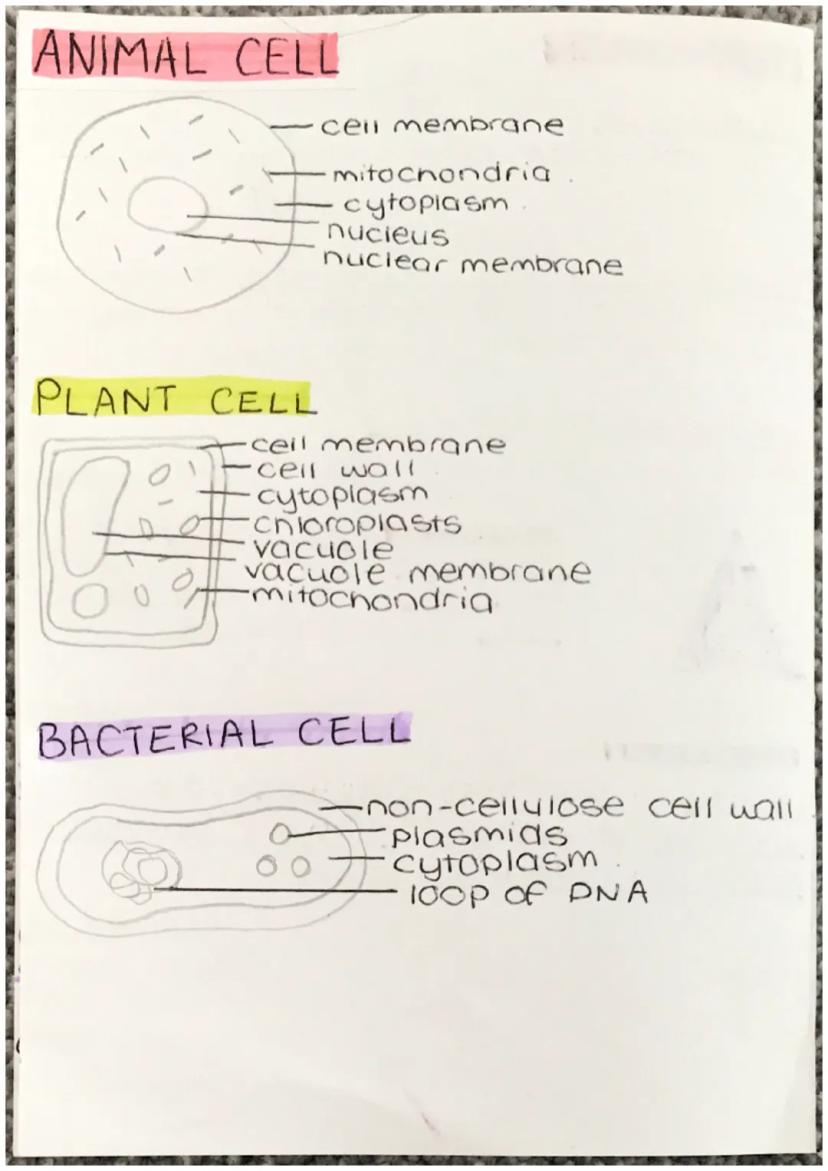 ANIMAL CELL
cell membrane
mitochondria
cytoplasm
nucleus
nuclear membrane
PLANT CELL
cell membrane
cell wall
cytoplasm
chloroplasts
vacuole
vacuole membrane
mitochondria
BACTERIAL CELL
non-cellulose cell wall
plasmids
cytoplasm
loop of DNA